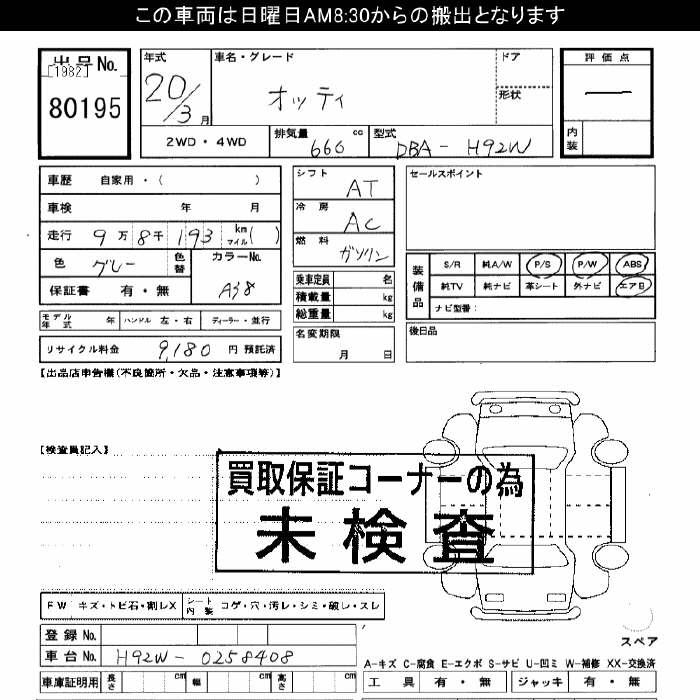 この車両は日曜日AM8:30からの搬出となります
出品No.
[1982]
80195
年式
20/3月
車名・グレード
オッティ
ドア
形状
2WD・4WD
排気量 660 cc
型式 DBA-H92W
評価点
—
内装
車歴 自家用・( )
車検 年 月
走行 9万8千193 km マイル( )
色 グレー
色替
カラーNo. A38
保証書 有・無
シフト AT
冷房 AC
燃料 ガソリン
乗車定員 名
積載量 kg
総重量 kg
名変期限
月 日
セールスポイント
装備品
S/R 純A/W P/S P/W ABS
純TV 純ナビ 革シート 外ナビ エアB
ナビ型番:
後日品
モデル年式 年 ハンドル 左・右 ディーラー・並行
リサイクル料金 9,180 円 預託済
【出品店申告欄(不良箇所・欠品・注意事項等)】
【検査員記入】
買取保証コーナーの為
未検査
FW キズ・トビ石・割レX
シート内装 コゲ・穴・汚レ・シミ・破レ・スレ
登録No.
車台No. H92W-0258408
車庫証明用 長さ cm 幅 cm 高さ cm
スペア
A-キズ C-腐食 E-エクボ S-サビ U-凹ミ W-補修 XX-交換済
工具 有・無 ジャッキ 有・無